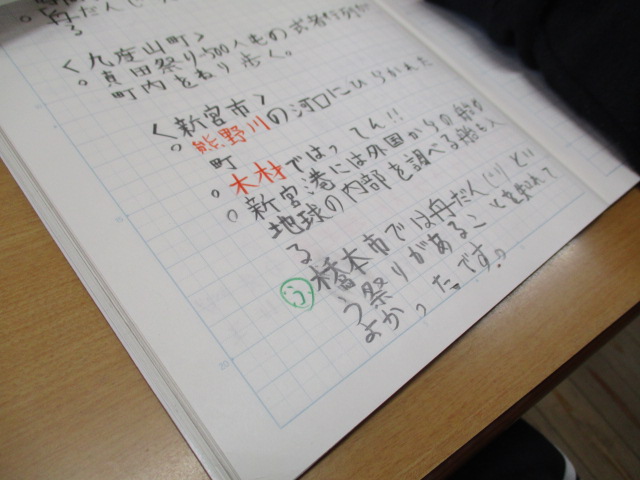 舟だんじり
る
<九度山町>
。真田祭り500人もの武者
町内をねり歩く。
<新宮市>
。熊野川の河口にひらかれた
町
。木材ではってん!!
。新宮港には外国からの船や
地球の内部を調べる船も入
る
う 橋本市では舟だんじりとい
う祭りがあることを知れて
よかったです。